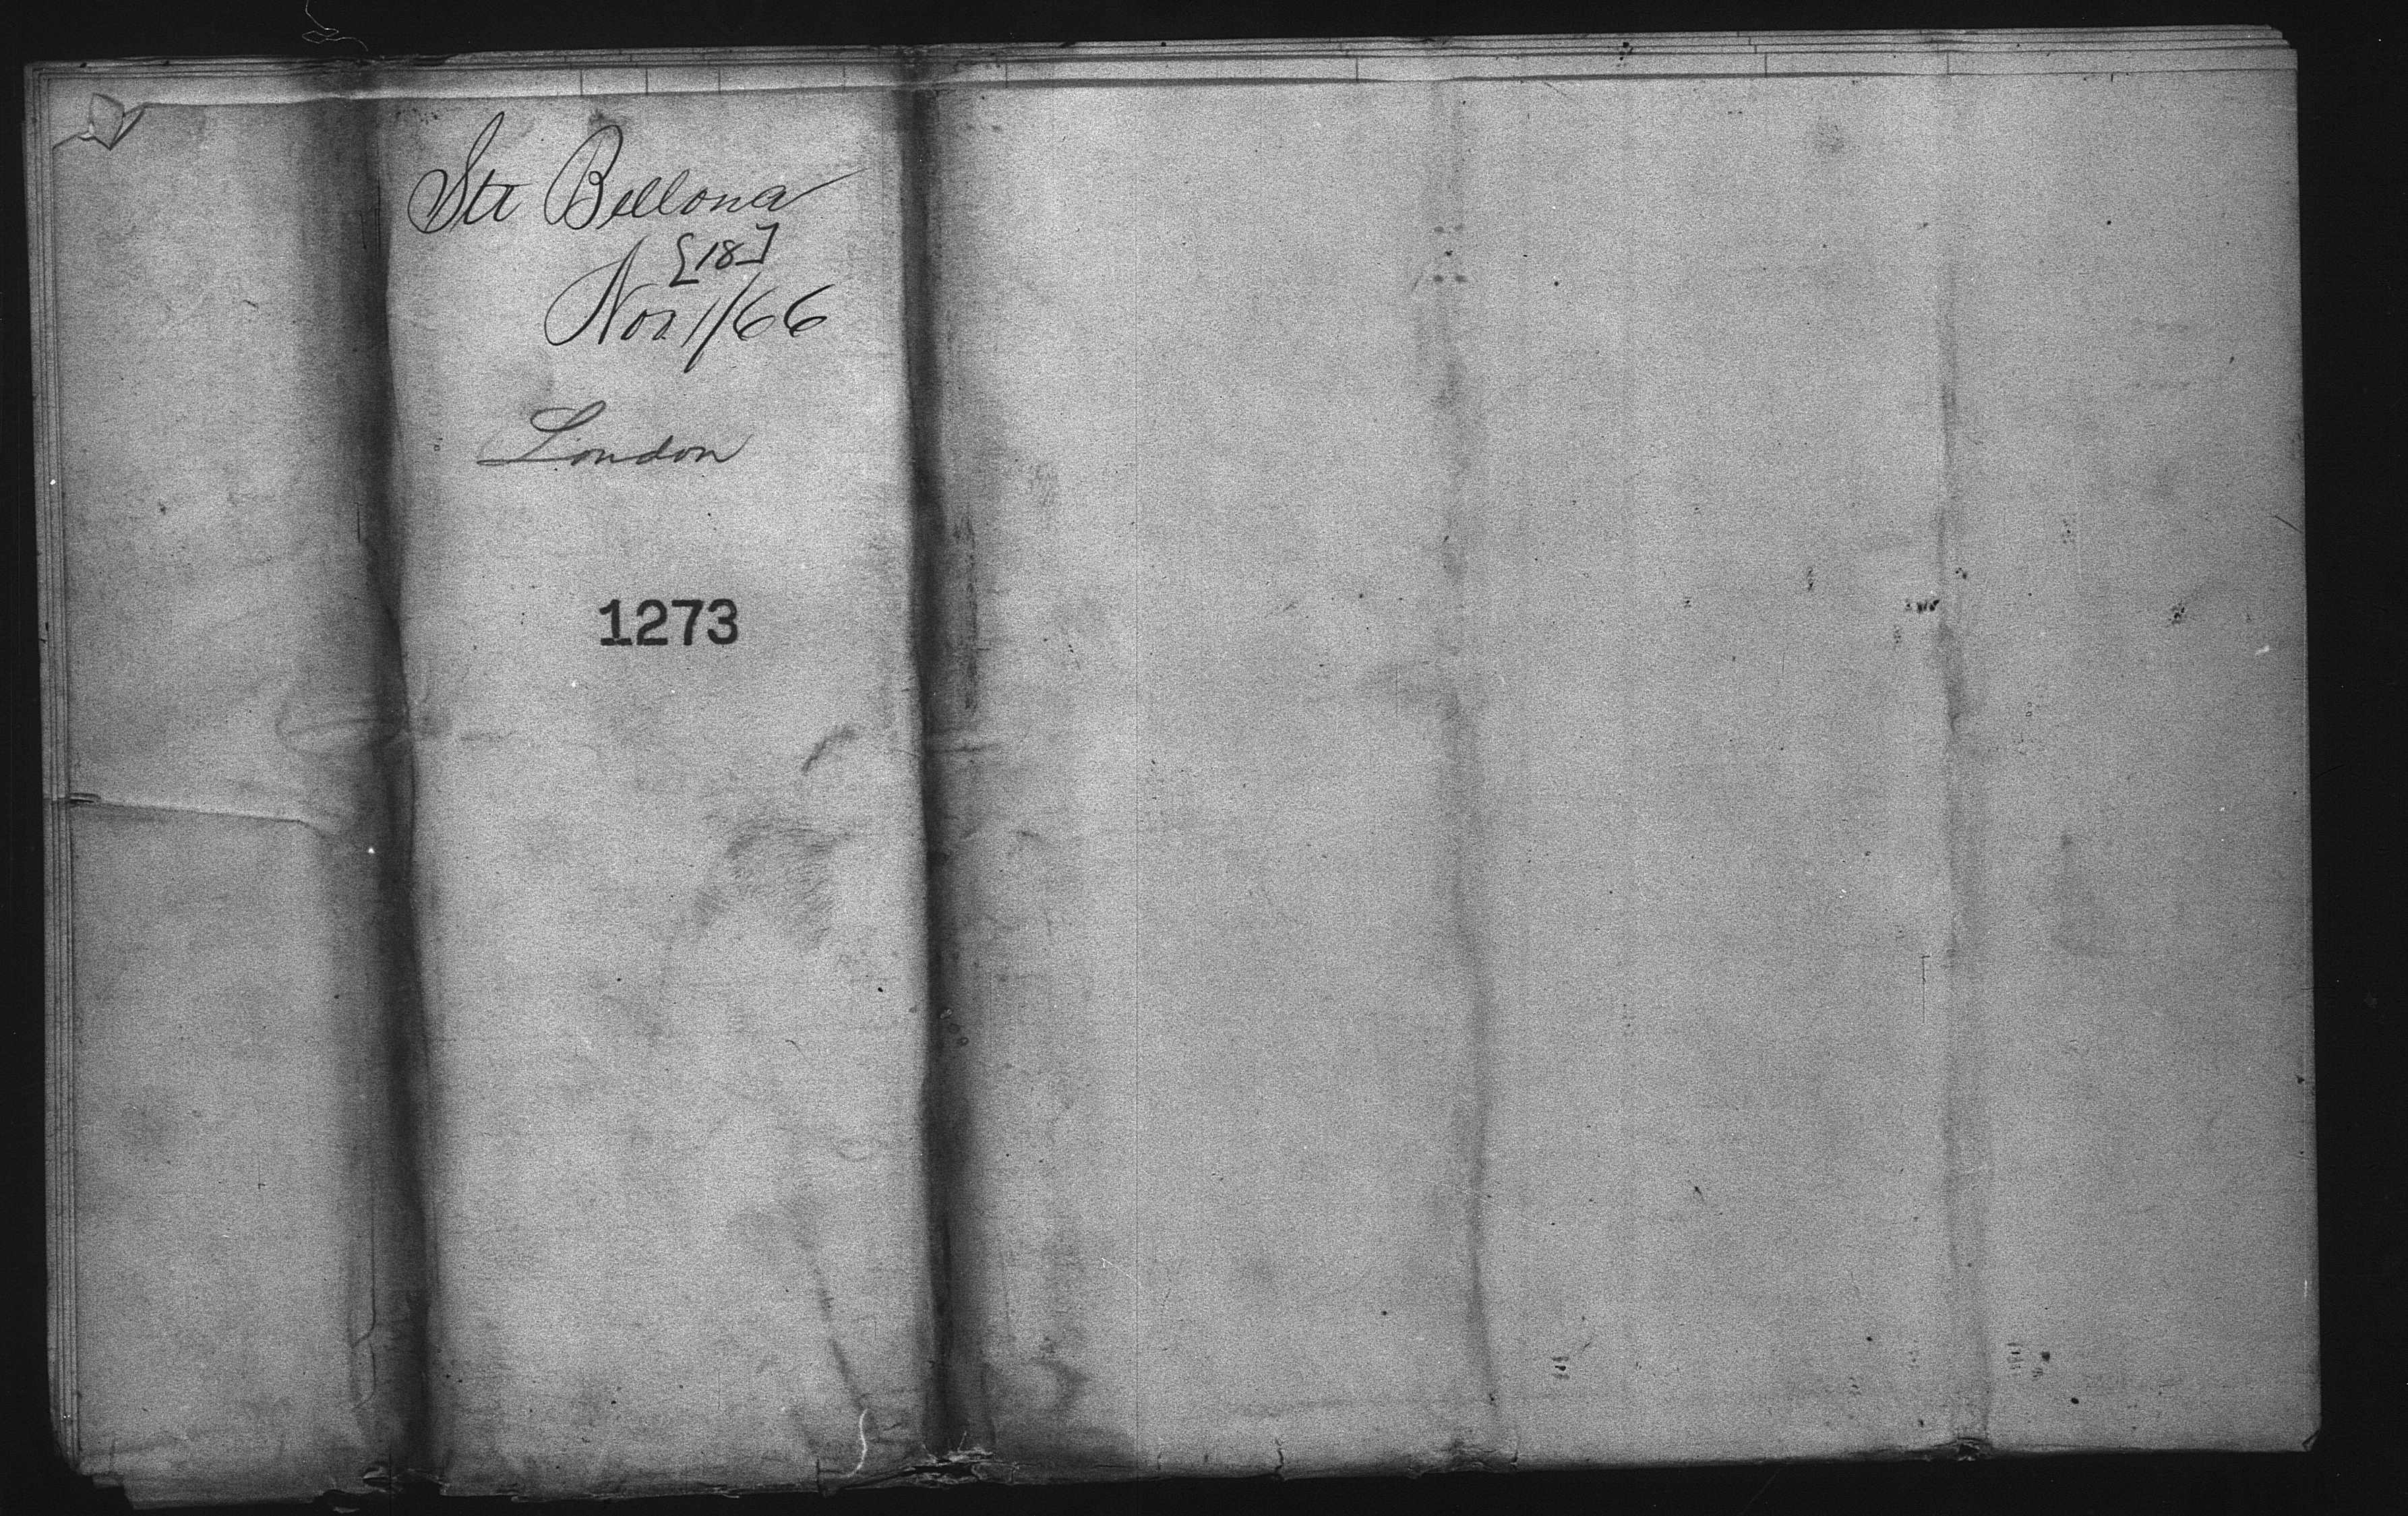 Str Bellona
[18]
Nov 1/66
London
1273